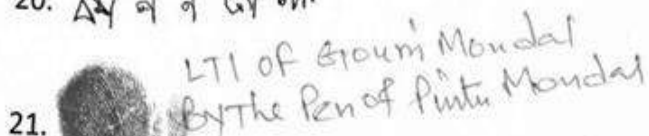 20.
LTI OF Gourri Mondal
21. By The Pen of Pintu Mondal